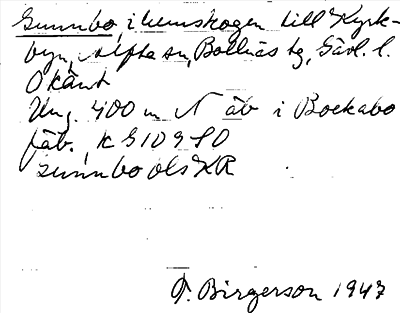 Gunnbo, i hemskogen till Kyrk-
byn, Alfta sn, Bollnäs tg, Gävl. l.
Okänt
Ung. 400 m N åb i Bockabo
fäb. K G1098O
gunnbo ols KR
T. Birgerson 1947